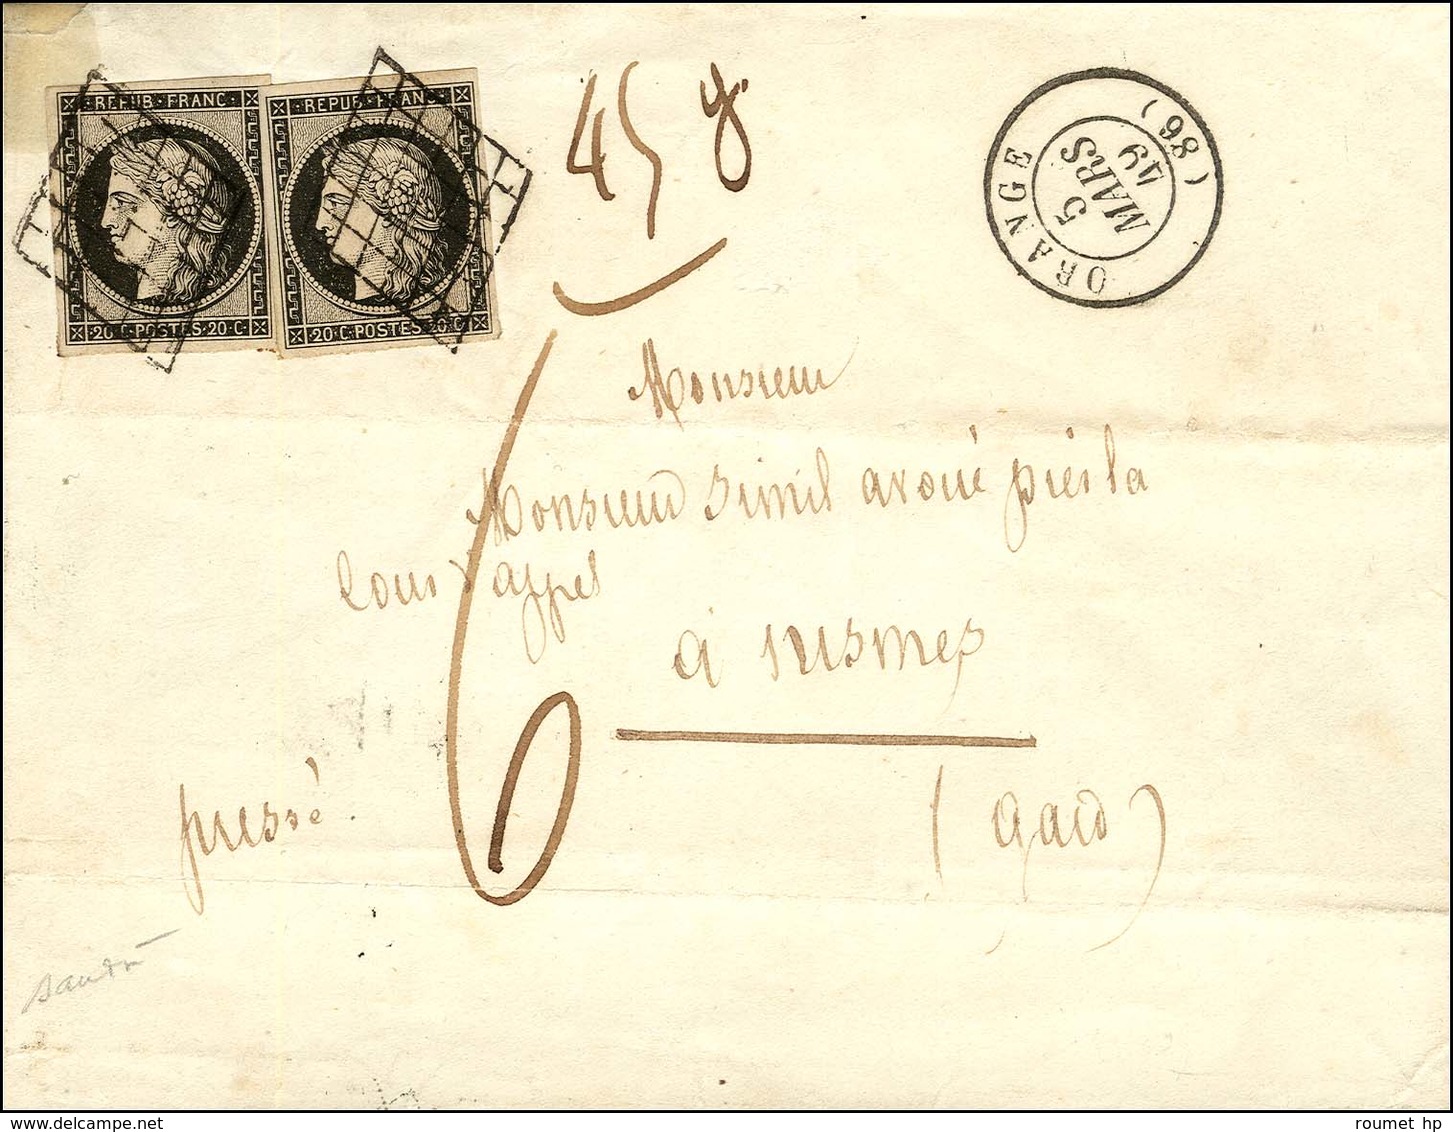 REPUB·FRANC·
·20·C·POSTES·20·C·
REPUB·FRANC·
·20·C·POSTES·20·C·
45 g.
ORANGE (86)
5
MARS
49
6
Monsieur
Monsieur Simil avoué près la
Cour d'appel
à Nismes
(Gard)
pressé
roumet hp